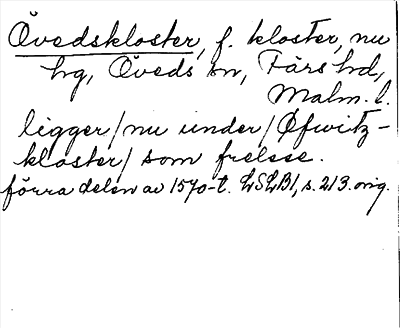 Övedskloster, f. kloster, nu
hg, Öveds sn, Färs hd,
Malm. l.
ligger/nu under/Öfwitz-
kloster/som frelsse.
förra delen av 1570-t. LSLB1, s. 213. orig.